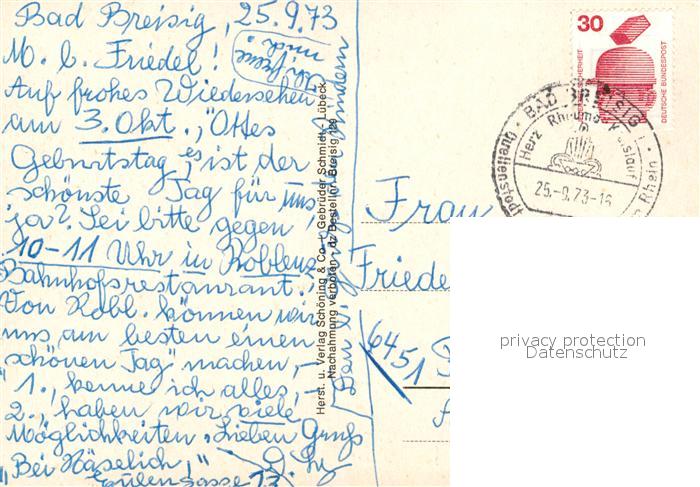 Bad Breisig, 25.9.73
M. l. Friedel!
Auf frohes Wiedersehen
am 3. Okt., "Ottos
Geburtstag", es ist der
schönste Tag für uns,
ja? Sei bitte gegen
10-11 Uhr in Koblenz
Bahnhofsrestaurant.
Von Kobl. können wir
uns am besten einen
"schönen Tag" machen,-
1., kenne ich alles,-
2., haben wir viele
Möglichkeiten. Lieben Gruß
"Bei Häselich,"
Eulengasse 13
Herst. u. Verlag Schöning & Co + Gebrüder Schmidt, Lübeck
Nachahmung verboten · dz Bestellnr. Breisig 129
30
DEUTSCHE BUNDESPOST
BAD BREISIG
Herz Rheuma Kreislauf
25.-9.73-16
Rhein
Frau
Friedel
6451
privacy protection
Datenschutz